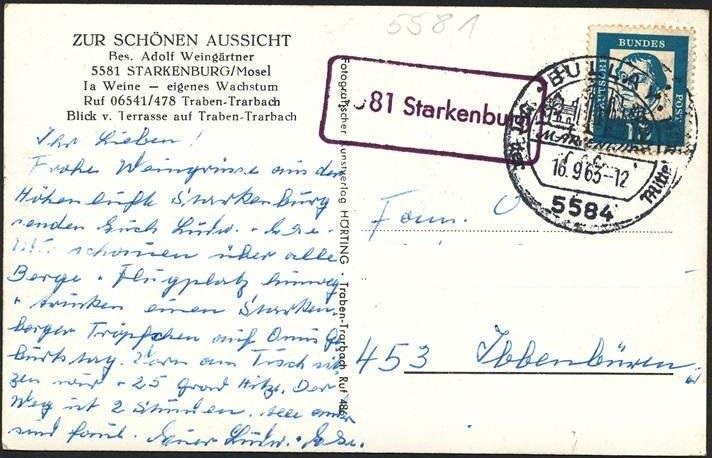 5581
ZUR SCHÖNEN AUSSICHT
Bes. Adolf Weingärtner
5581 STARKENBURG/Mosel
Ia Weine — eigenes Wachstum
Ruf 06541/478 Traben-Trarbach
Blick v. Terrasse auf Traben-Trarbach
Ihr Lieben!
Frohe Weingrüsse aus der
Höhenluft Starkenburg
senden Euch Ludw.
schauen über alle
Berge Flugplatz hinweg
trinken einen Starken-
berger Tröpfchen auf Omis Ge
burtstag. Vorn am Tisch sit
zen wir 25 Grad Hitze. Der
Weg ist 2 Stunden. alle
sind faul. Ludw.
Fotografischer Kunstverlag HÖRTING · Traben-Trarbach Ruf
81 Starkenburg
DEUTSCHE
BUNDES
POST
BULLAY
16.9.63-12
5584
Fam.
453 Ibbenbüren